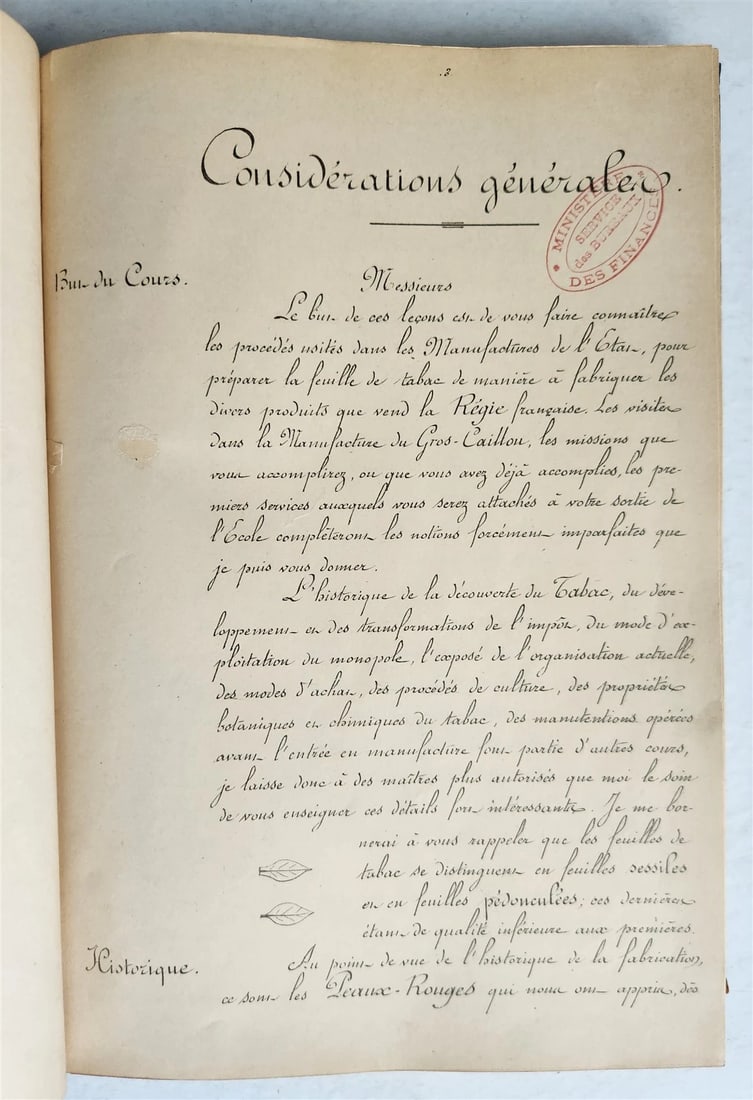 3
Considérations générales.
MINISTÈRE DES FINANCES
SERVICE
des BUREAUX
But du Cours.
Messieurs
Le but de ces leçons est de vous faire connaître
les procédés usités dans les Manufactures de l'Etat, pour
préparer la feuille de tabac de manière à fabriquer les
divers produits que vend la Régie française. Les visites
dans la Manufacture du Gros-Caillou, les missions que
vous accomplirez, ou que vous avez déjà accomplies, les pre-
miers services auxquels vous serez attachés à votre sortie de
l'Ecole compléteront les notions forcément imparfaites que
je puis vous donner.
L'historique de la découverte du Tabac, du déve-
loppement et des transformations de l'impôt, du mode d'ex-
ploitation du monopole, l'exposé de l'organisation actuelle,
des modes d'achat, des procédés de culture, des propriétés
botaniques et chimiques du tabac, des manutentions opérées
avant l'entrée en manufacture font partie d'autres cours,
je laisse donc à des maîtres plus autorisés que moi le soin
de vous enseigner ces détails fort intéressants. Je me bor-
nerai à vous rappeler que les feuilles de
tabac se distinguent en feuilles sessiles
et en feuilles pédonculées; ces dernières
étant de qualité inférieure aux premières.
Historique.
Au point de vue de l'historique de la fabrication,
ce sont les Peaux-Rouges qui nous ont appris, dès